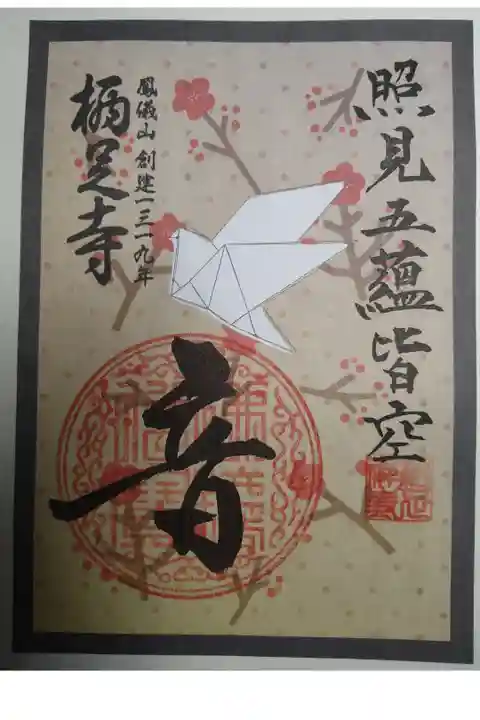 照見五蘊皆空
鳳儀山 創建一三一九年
栖足寺
音